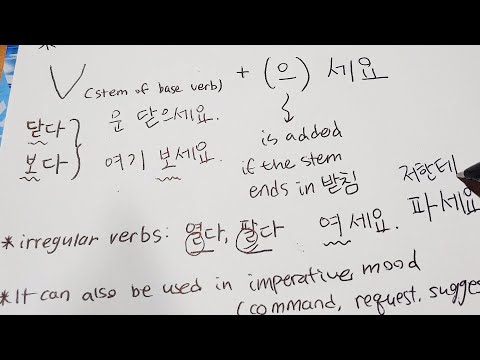 *
V (stem of base verb) + (으) 세요
닫다 문 닫으세요.
is added
보다 여기 보세요.
if the stem
ends in 받침
저한테
*irregular verbs: 열다, 팔다 여세요. 파세요
*It can also be used in imperative mood
(command, request, sugges